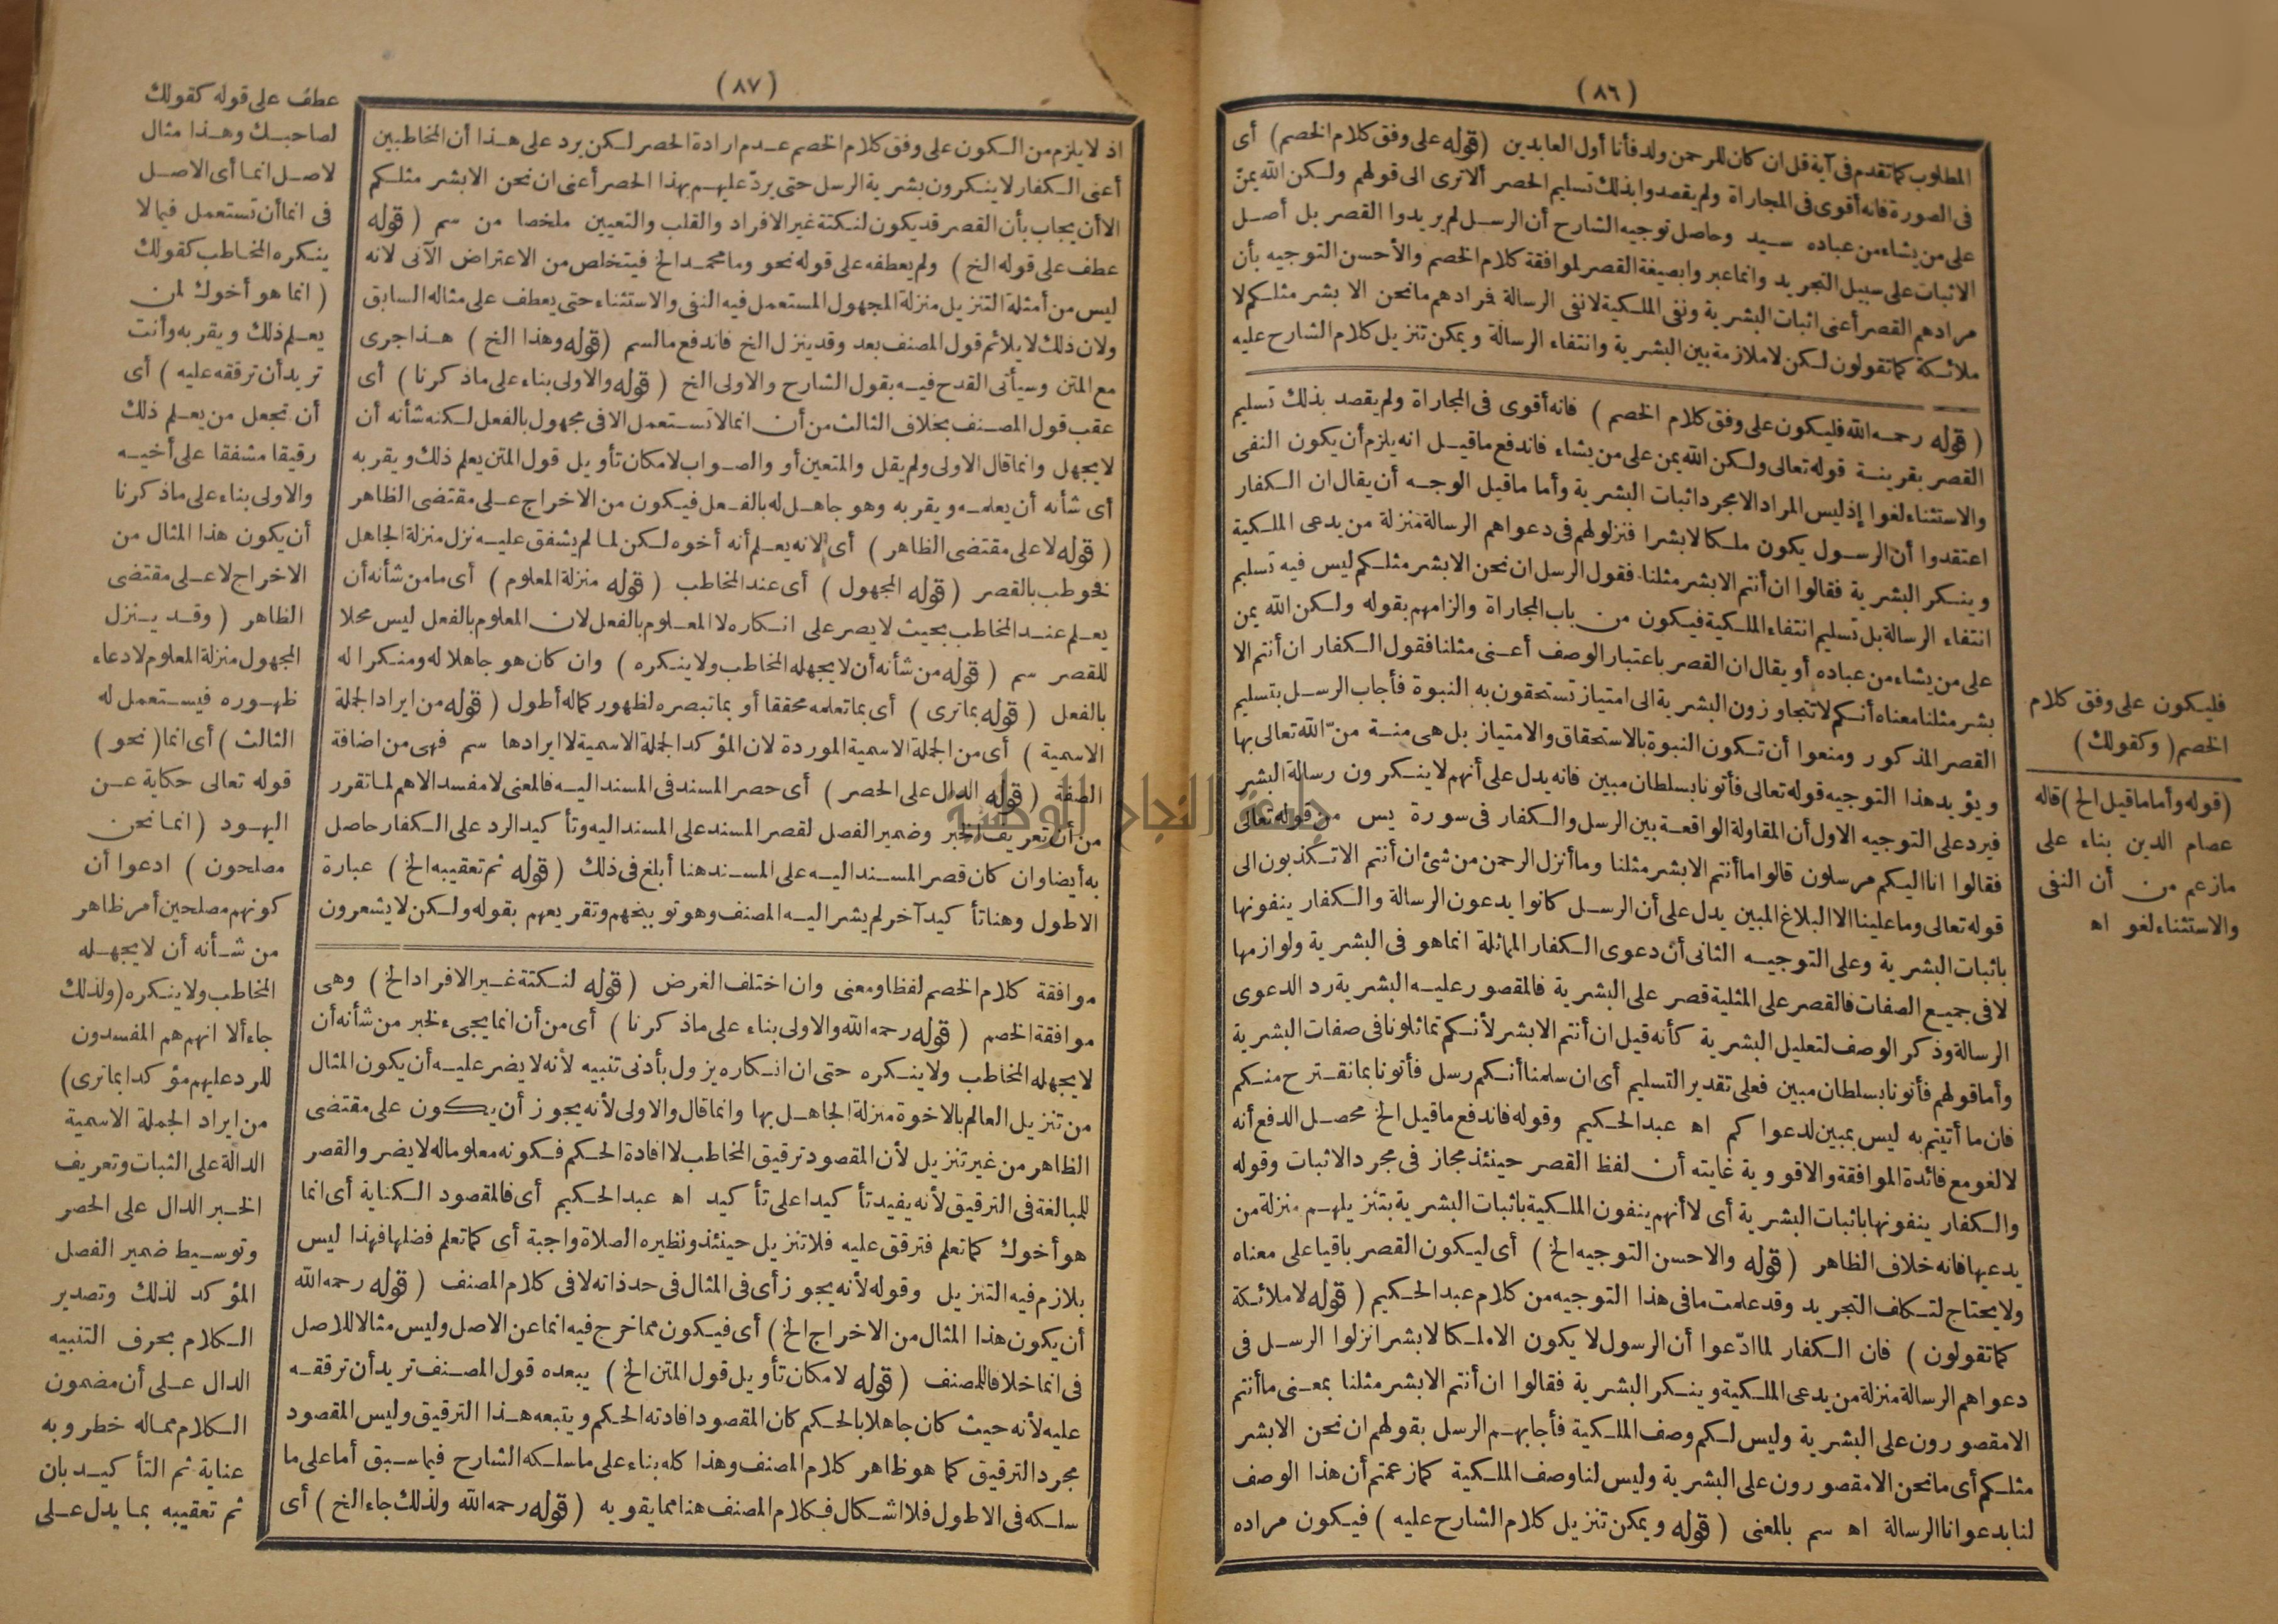 (٨٦)
المطلوب كما تقدم فى آية قل ان كان للرحمن ولد فأنا أول العابدين (قوله على وفق كلام الخصم) أى
فى الصورة فانه أقوى فى المجاراة ولم يقصدوا بذلك تسليم الحصر ألا ترى الى قولهم ولكن الله يمنّ
على من يشاء من عباده سيد وحاصل توجيه الشارح أن الرسل لم يريدوا القصر بل أصل
الاثبات على سبيل التجريد وانما عبروا بصيغة القصر لموافقة كلام الخصم والأحسن التوجيه بأن
مرادهم القصر أعنى اثبات البشرية ونفى الملكية لا نفى الرسالة فمرادهم ما نحن الا بشر مثلكم لا
ملائكة كما تقولون لكن لا ملازمة بين البشرية وانتفاء الرسالة ويمكن تنزيل كلام الشارح عليه
(قوله رحمه الله فليكون على وفق كلام الخصم) فانه أقوى فى المجاراة ولم يقصد بذلك تسليم
القصر بقرينة قوله تعالى ولكن الله يمن على من يشاء فاندفع ما قيل انه يلزم أن يكون النفى
والاستثناء لغوا إذ ليس المراد الا مجرد اثبات البشرية وأما ما قيل الوجه أن يقال ان الكفار
اعتقدوا أن الرسول يكون ملكا لا بشرا فنزلوهم فى دعواهم الرسالة منزلة من يدعى الملكية
وينكر البشرية فقالوا ان أنتم الا بشر مثلنا فقول الرسل ان نحن الا بشر مثلكم ليس فيه تسليم
انتفاء الرسالة بل تسليم انتفاء الملكية فيكون من باب المجاراة والزامهم بقوله ولكن الله يمن
على من يشاء من عباده أو يقال ان القصر باعتبار الوصف أعنى مثلنا فقول الكفار ان أنتم الا
بشر مثلنا معناه أنكم لا تتجاوزون البشرية الى امتياز تستحقون به النبوة فأجاب الرسل بتسليم
القصر المذكور ومنعوا أن تكون النبوة بالاستحقاق والامتياز بل هى منة منّ الله تعالى بها
ويؤيد هذا التوجيه قوله تعالى فأتونا بسلطان مبين فانه يدل على أنهم لا ينكرون رسالة البشر
فيرد على التوجيه الاول أن المقاولة الواقعة بين الرسل والكفار فى سورة يس من قوله تعالى
فقالوا انا اليكم مرسلون قالوا ما أنتم الا بشر مثلنا وما أنزل الرحمن من شئ ان أنتم الا تكذبون الى
قوله تعالى وما علينا الا البلاغ المبين يدل على أن الرسل كانوا يدعون الرسالة والكفار ينفونها
باثبات البشرية وعلى التوجيه الثانى أن دعوى الكفار المماثلة انما هو فى البشرية ولوازمها
لا فى جميع الصفات فالقصر على المثلية قصر على البشرية فالمقصور عليه البشرية رد الدعوى
الرسالة وذكر الوصف لتعليل البشرية كأنه قيل ان أنتم الا بشر لأنكم تماثلونا فى صفات البشرية
وأما قولهم فأتونا بسلطان مبين فعلى تقدير التسليم أى ان سلمنا أنكم رسل فأتونا بما نقترح منكم
فان ما أتيتم به ليس بمبين لدعواكم اه عبد الحكيم وقوله فاندفع ما قيل الخ محصل الدفع أنه
لا لغو مع فائدة الموافقة والاقووية غايته أن لفظ القصر حينئذ مجاز فى مجرد الاثبات وقوله
والكفار ينفونها باثبات البشرية أى لا أنهم ينفون الملكية باثبات البشرية بتنزيلهم منزلة من
يدعيها فانه خلاف الظاهر (قوله والاحسن التوجيه الخ) أى ليكون القصر باقيا على معناه
ولا يحتاج لتكلف التجريد وقد علمت ما فى هذا التوجيه من كلام عبد الحكيم (قوله لا ملائكة
كما تقولون) فان الكفار لما ادّعوا أن الرسول لا يكون الا ملكا لا بشرا نزلوا الرسل فى
دعواهم الرسالة منزلة من يدعى الملكية وينكر البشرية فقالوا ان أنتم الا بشر مثلنا بمعنى ما أنتم
الا مقصورون على البشرية وليس لكم وصف الملكية فأجابهم الرسل بقولهم ان نحن الا بشر
مثلكم أى ما نحن الا مقصورون على البشرية وليس لنا وصف الملكية كما زعمتم أن هذا الوصف
لنا بدعوانا الرسالة اه سم بالمعنى (قوله ويمكن تنزيل كلام الشارح عليه) فيكون مراده
فليكون على وفق كلام
الخصم (وكقولك)
(قوله وأما ما قيل الخ) قاله
عصام الدين بناء على
ما زعم من أن النفى
والاستثناء لغو اه
(٨٧)
اذ لا يلزم من الكون على وفق كلام الخصم عدم ارادة الحصر لكن يرد على هذا أن المخاطبين
أعنى الكفار لا ينكرون بشرية الرسل حتى يردّ عليهم بهذا الحصر أعنى ان نحن الا بشر مثلكم
الا أن يجاب بأن القصر قد يكون لنكتة غير الافراد والقلب والتعيين ملخصا من سم (قوله
عطف على قوله الخ) ولم يعطفه على قوله نحو وما محمد الخ فيتخلص من الاعتراض الآتى لانه
ليس من أمثلة التنزيل منزلة المجهول المستعمل فيه النفى والاستثناء حتى يعطف على مثاله السابق
ولان ذلك لا يلائم قول المصنف بعد وقد ينزل الخ فاندفع ما لسم (قوله وهذا الخ) هذا جرى
مع المتن وسيأتى القدح فيه بقول الشارح والاولى الخ (قوله والاولى بناء على ما ذكرنا) أى
عقب قول المصنف بخلاف الثالث من أن انما لا تستعمل الا فى مجهول بالفعل لكنه شأنه أن
لا يجهل وانما قال الاولى ولم يقل والمتعين أو والصواب لامكان تأويل قول المتن يعلم ذلك ويقر به
أى شأنه أن يعلمه ويقر به وهو جاهل له بالفعل فيكون من الاخراج على مقتضى الظاهر
(قوله لا على مقتضى الظاهر) أى لانه يعلم أنه أخوه لكن لما لم يشفق عليه نزل منزلة الجاهل
فخوطب بالقصر (قوله المجهول) أى عند المخاطب (قوله منزلة المعلوم) أى ما من شأنه أن
يعلم عند المخاطب بحيث لا يصر على انكاره لا المعلوم بالفعل لان المعلوم بالفعل ليس محلا
للقصر سم (قوله من شأنه أن لا يجهله المخاطب ولا ينكره) وان كان هو جاهلا له ومنكرا له
بالفعل (قوله بما ترى) أى بما تعلمه محققا أو بما تبصره لظهور كماله أطول (قوله من ايراد الجملة
الاسمية) أى من الجملة الاسمية الموردة لان المؤكد الجملة الاسمية لا ايرادها سم فهى من اضافة
الصفة (قوله الدال على الحصر) أى حصر المسند فى المسند اليه فالمعنى لا مفسد الا هم لما تقرر
من أن تعريف الخبر وضمير الفصل لقصر المسند على المسند اليه وتأكيد الرد على الكفار حاصل
به أيضا وان كان قصر المسند اليه على المسند هنا أبلغ فى ذلك (قوله ثم تعقيبه الخ) عبارة
الاطول وهنا تأكيد آخر لم يشر اليه المصنف وهو توبيخهم وتقريعهم بقوله ولكن لا يشعرون
موافقة كلام الخصم لفظا ومعنى وان اختلف الغرض (قوله لنكتة غير الافراد الخ) وهى
موافقة الخصم (قوله رحمه الله والاولى بناء على ما ذكرنا) أى من أن انما يجىء لخبر من شأنه أن
لا يجهله المخاطب ولا ينكره حتى ان انكاره يزول بأدنى تنبيه لأنه لا يضر عليه أن يكون المثال
من تنزيل العالم بالاخوة منزلة الجاهل بها وانما قال والاولى لأنه يجوز أن يكون على مقتضى
الظاهر من غير تنزيل لأن المقصود ترقيق المخاطب لا افادة الحكم فكونه معلوما له لا يضر والقصر
للمبالغة فى الترقيق لأنه يفيد تأكيدا على تأكيد اه عبد الحكيم أى فالمقصود الكناية أى انما
هو أخوك كما تعلم فترقق عليه فلا تنزيل حينئذ ونظيره الصلاة واجبة أى كما تعلم فضلها فهذا ليس
بلازم فيه التنزيل وقوله لأنه يجوز أى فى المثال فى حد ذاته لا فى كلام المصنف (قوله رحمه الله
أن يكون هذا المثال من الاخراج الخ) أى فيكون مما خرج فيه انما عن الاصل وليس مثالا للاصل
فى انما خلافا للمصنف (قوله لا مكان تأويل قول المتن الخ) يبعده قول المصنف تريد أن ترققه
عليه لأنه حيث كان جاهلا بالحكم كان المقصود افادته الحكم ويتبعه هذا الترقيق وليس المقصود
مجرد الترقيق كما هو ظاهر كلام المصنف وهذا كله بناء على ما سلكه الشارح فيما سبق أما على ما
سلكه فى الاطول فلا اشكال فكلام المصنف هنا مما يقويه (قوله رحمه الله ولذلك جاء الخ) أى
عطف على قوله كقولك
لصاحبك وهذا مثال
لاصل انما أى الاصل
فى انما أن تستعمل فيما لا
ينكره المخاطب كقولك
(انما هو أخوك لمن
يعلم ذلك ويقر به وأنت
تريد أن ترققه عليه) أى
أن تجعل من يعلم ذلك
رقيقا مشفقا على أخيه
والاولى بناء على ما ذكرنا
أن يكون هذا المثال من
الاخراج لا على مقتضى
الظاهر (وقد ينزل
المجهول منزلة المعلوم لادعاء
ظهوره فيستعمل له
الثالث) أى انما (نحو)
قوله تعالى حكاية عن
اليهود (انما نحن
مصلحون) ادعوا أن
كونهم مصلحين أمر ظاهر
من شأنه أن لا يجهله
المخاطب ولا ينكره (ولذلك
جاء ألا انهم هم المفسدون
للرد عليهم مؤكدا بما ترى)
من ايراد الجملة الاسمية
الدالة على الثبات وتعريف
الخبر الدال على الحصر
وتوسيط ضمير الفصل
المؤكد لذلك وتصدير
الكلام بحرف التنبيه
الدال على أن مضمون
الكلام مما له خطر وبه
عناية ثم التأكيد بان
ثم تعقيبه بما يدل على
جامعة النجاح الوطنية